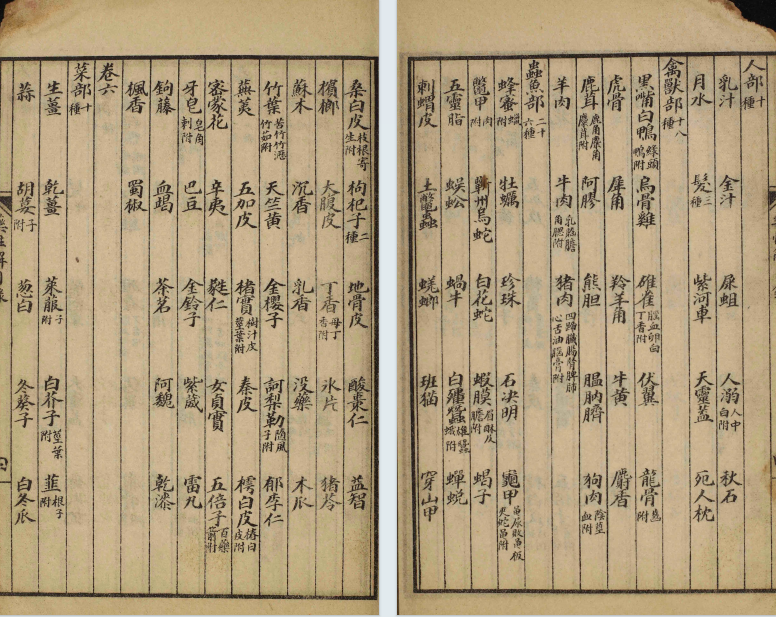 人部十種
乳汁 金汁 尿蛆 人溺人中白附 秋石
月水 髮三種 紫河車 天靈蓋 死人枕
禽獸部十八種
黑嘴白鴨綠頭鴨附 烏骨雞 雄雀腦血卵白丁香附 伏翼 龍骨齒附
虎骨 犀角 羚羊角 牛黃 麝香
鹿茸鹿角麋角麋茸附 阿膠 熊胆 膃肭臍 狗肉陰莖血附
羊肉 牛肉 猪肉四蹄臟腸腎脾肺心舌油腦膏附
蟲魚部二十六種
蜂蜜蠟附 牡蠣 珍珠 石决明 龜甲
鱉甲肉附 蘄州烏蛇 白花蛇 蝦蟆 蝎子
五靈脂 蜈蚣 蝸牛 白殭蠶雄蠶蛾附 蟬蛻
刺蝟皮 土鱉蟲 蜣螂 班猫 穿山甲
桑白皮枝根寄生附 枸杞子二種 地骨皮 酸棗仁 益智
檳榔 大腹皮 丁香母丁香附 氷片 猪苓
蘇木 沉香 乳香 没藥 木瓜
竹葉苦竹竹瀝竹茹附 天竺黃 金櫻子 訶梨勒隨風子附 郁李仁
蕪荑 五加皮 楮實樹汁皮莖葉附 秦皮 樗白皮椿白皮附
密蒙花 辛夷 蕤仁 女貞實 五倍子百藥煎附
牙皂皂角刺附 巴豆 金鈴子 紫葳 雷丸
鉤藤 血竭 茶茗 阿魏 乾漆
楓香 蜀椒
卷六
菜部十種
生薑 乾薑 萊菔子附 白芥子莖葉附 韮根子附
蒜 胡荽子附 葱白 冬葵子 白冬瓜